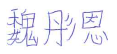 魏彤恩